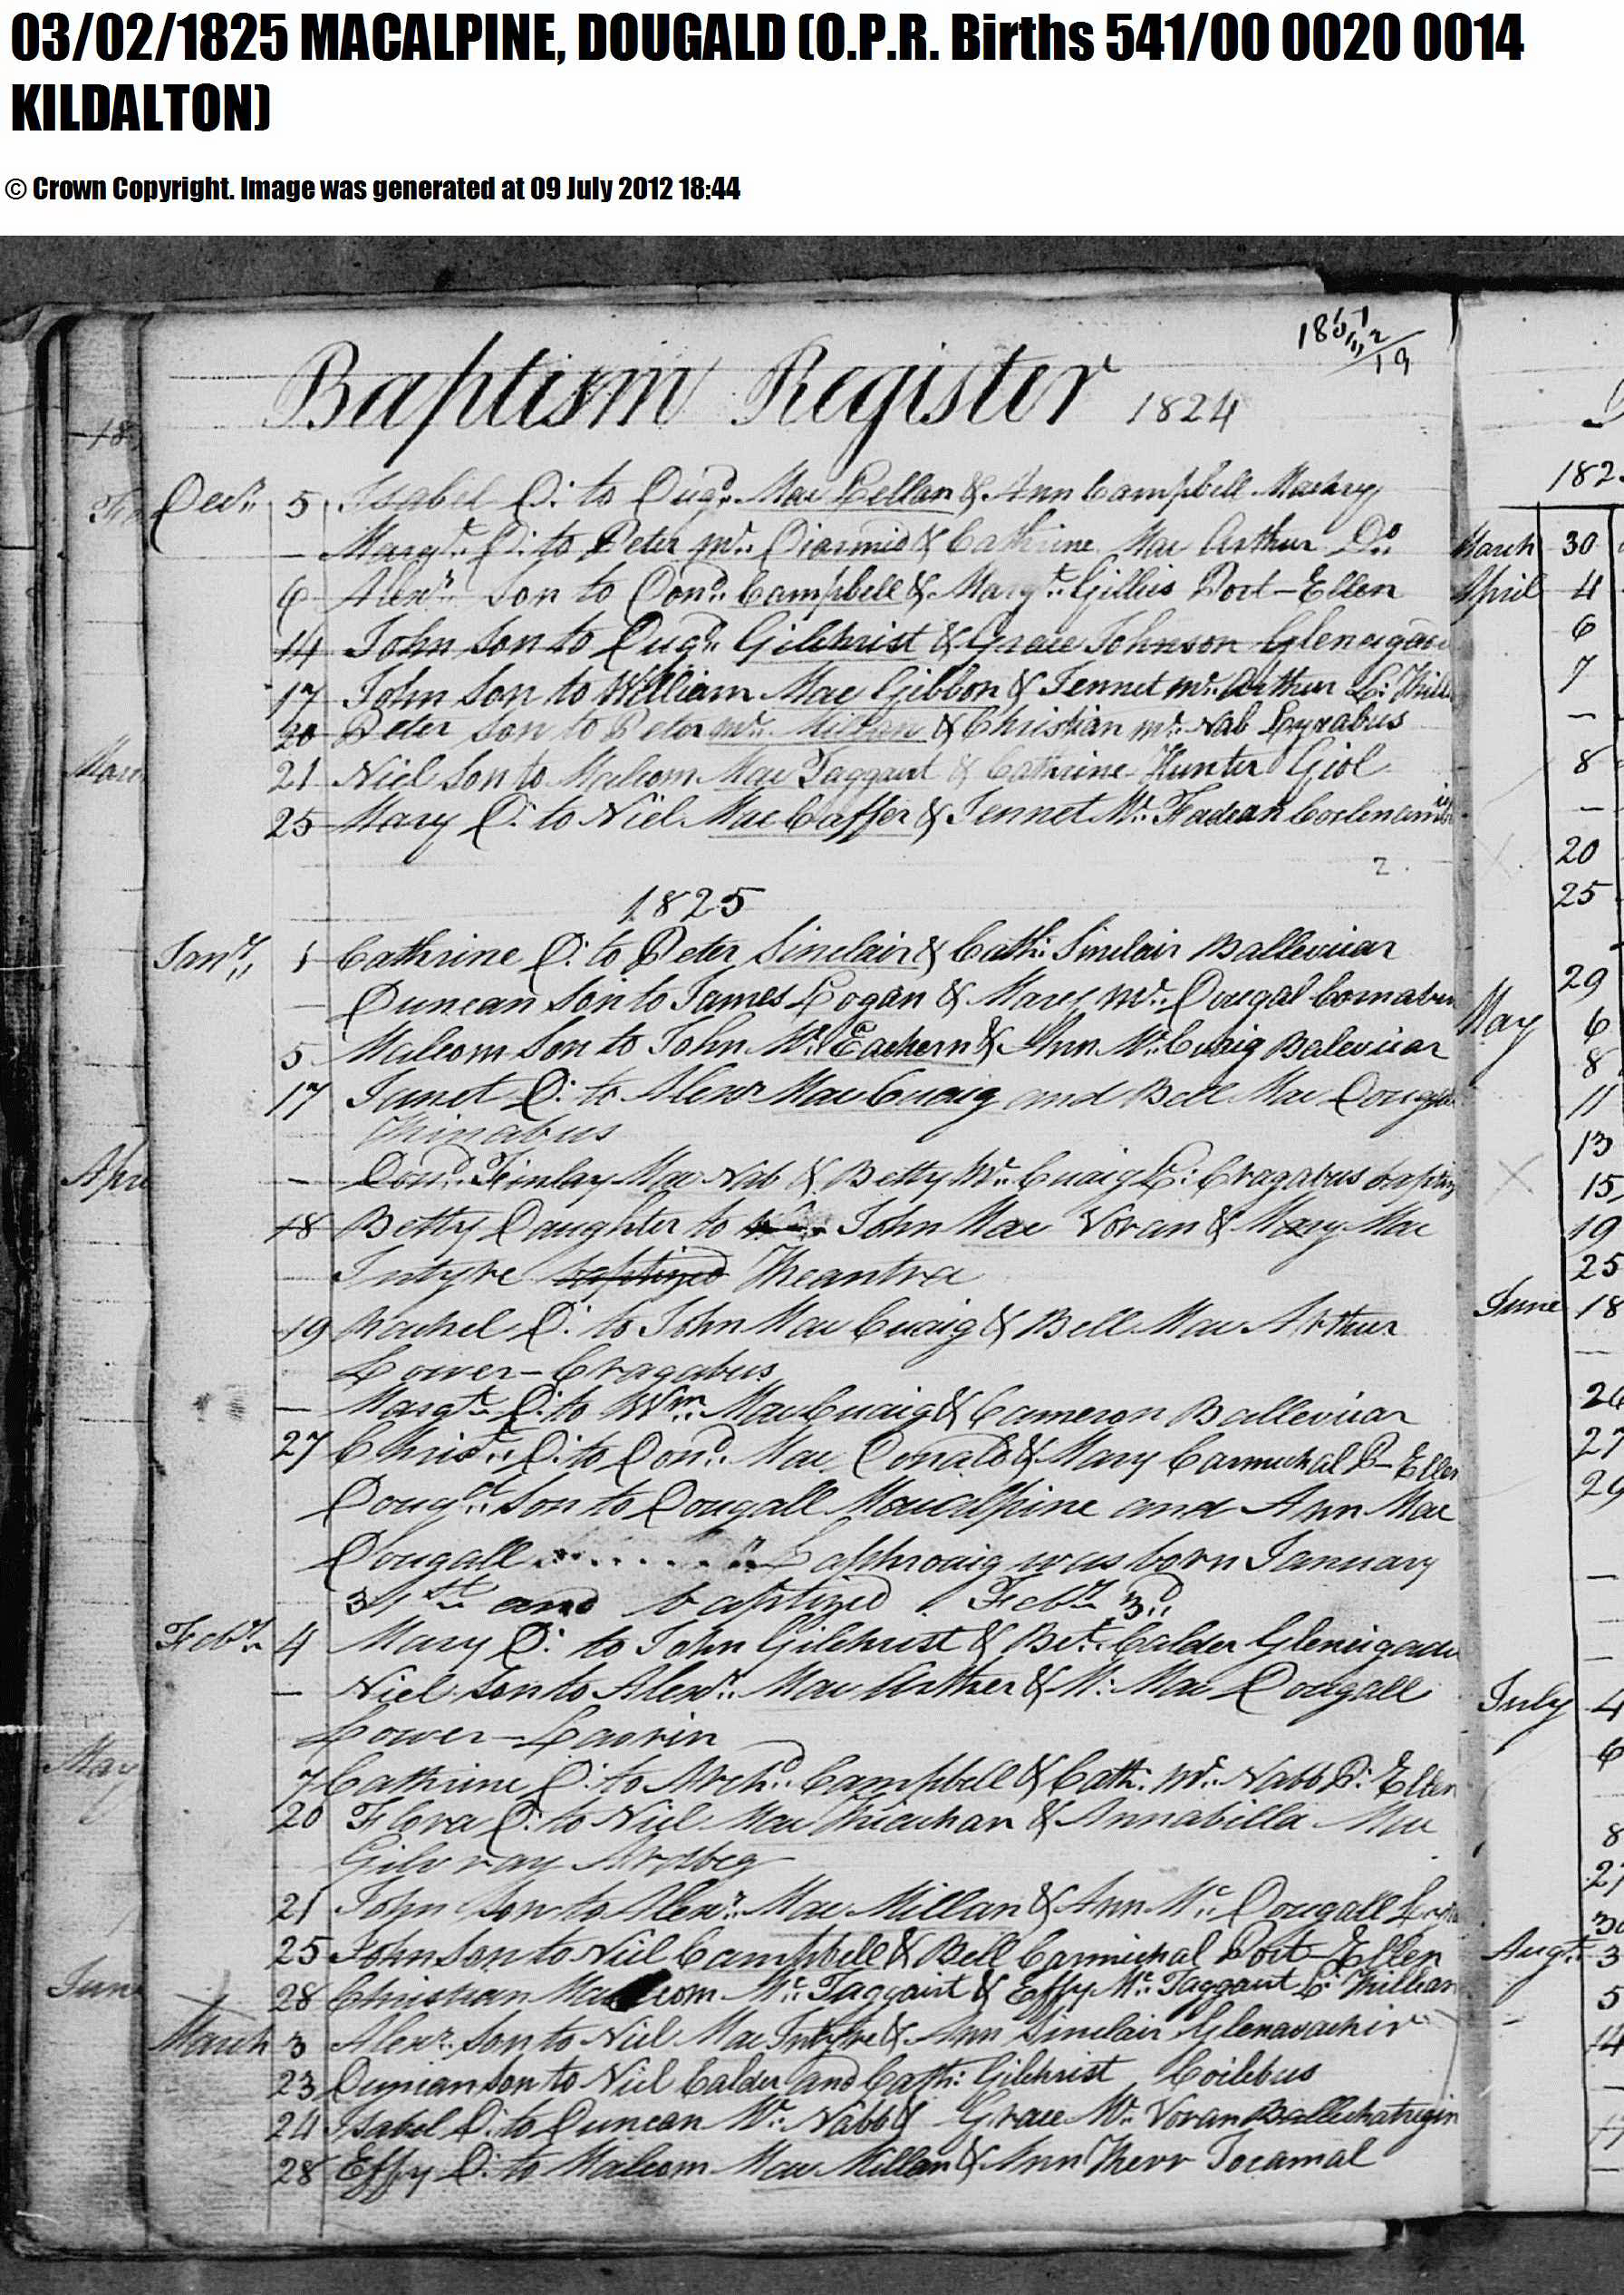 03/02/1825 MACALPINE, DOUGALD (O.P.R. Births 541/00 0020 0014
KILDALTON)
© Crown Copyright. Image was generated at 09 July 2012 18:44
Baptism Register 1824
Decr. 5 Isabel D: to Dugd. Mac Lellan & Ann Campbell Machry
— Margt. D: to Peter Mc. Diarmid & Cathrine Mac Arthur Do.
6 Alexr. Son to Dond. Campbell & Margt. Gillies Port-Ellen
14 John Son to Dugd. Gilchrist & Grace Johnson Glenegade
17 John Son to William Mac Gibbon & Jennet Mc. Arthur
20 Peter Son to Peter Mc. Millan & Christian Mc. Nab Lyrabus
21 Niel Son to Malcom Mac Taggart & Cathrine Hunter Giol
25 Mary D: to Niel Mac Caffer & Jennet Mc. Fadean
2.
1825
Jany. 1 Cathrine D: to Peter Sinclair & Cath: Sinclair Ballevicar
— Duncan Son to James Logan & Mary Mc. Dougal
5 Malcom Son to John Mc. Eachern & Ann Mc. Cuaig Balevicar
17 Janet D: to Alexr. Mac Cuaig and Bell Mac
Kinabus
— Dond. Finlay Mac Nab & Betty Mc. Cuaig L: Cragabus
18 Betty Daughter to John Mac Voran & Mary Mac
Intyre baptized
19 Rachel D: to John Mac Cuaig & Bell Mac Arthur
Lower-Cragabus
— Margt. D: to Wm. Mac Cuaig & Cameron Ballevicar
27 Christ. D: to Dond. Mac Donald & Mary Carmichal P- Ellen
Dougd. Son to Dougall Macalpine and Ann Mac
Dougall Laphroaig was born January
31st. and baptized Feby. 3d.
Feby. 4 Mary D: to John Gilchrist & Bet. Calder Glenegade
— Niel Son to Alexr. Mac Arther & M: Mac Dougall
Lower-Leorin
7 Cathrine D: to Archd. Campbell & Cath. Mc. Nabb P: Ellen
20 Flora D: to Niel Mac & Annabilla Mac
Gilvray Ardbeg
21 John Son to Alexr. Mac Millan & Ann Mc. Dougall
25 John Son to Niel Campbell & Bell Carmichal Port-Ellen
28 Christian Malcom Mc. Taggart & Effy Mc. Taggart
March 3 Alexr. Son to Niel Mac Intyre & Ann Sinclair
23 Duncan Son to Niel Calder and Cath: Gilchrist Coilebus
24 Isabel D: to Duncan Mc. Nabb & Grace Mc. Voran
28 Effy D: to Malcom Mac Millan & Ann Kerr Tocamal
182
March 30
April 4
6
7
—
8
—
20
25
29
May 6
8
11
13
15
19
25
June 18
—
26
27
29
July 4
6
8
27
30
Augt. 3
5
14